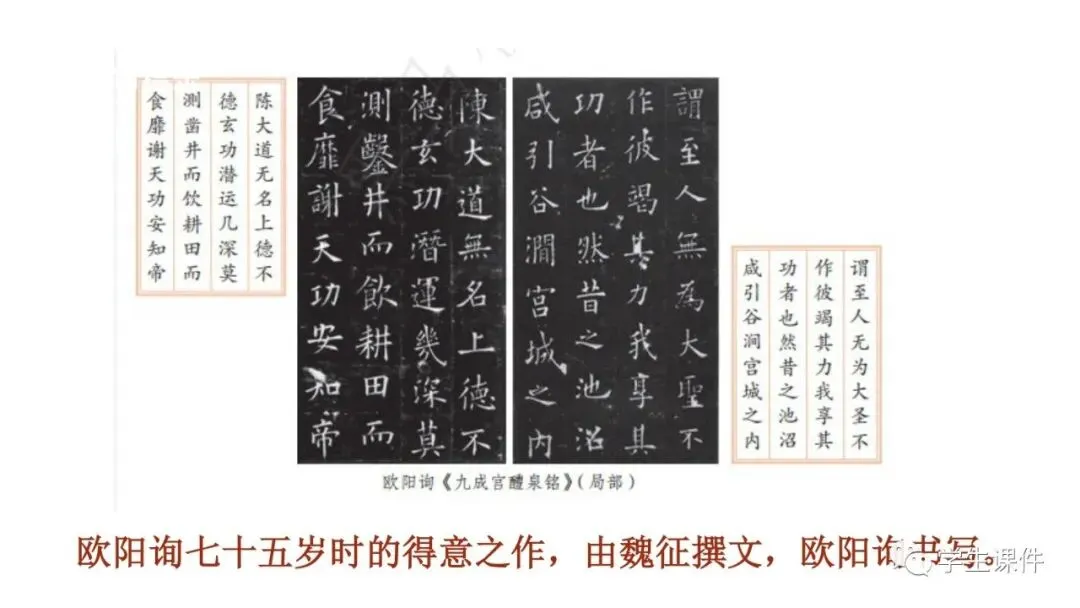 谓至人无为大圣不
作彼竭其力我享其
功者也然昔之池沼
咸引谷涧宫城之内
謂至人無為大聖不
作彼竭其力我享其
功者也然昔之池沼
咸引谷澗宫城之内
陳大道無名上德不
德玄功潛運幾深莫
測鑿井而飲耕田而
食靡謝天功安知帝
陈大道无名上德不
德玄功潜运几深莫
测凿井而饮耕田而
食靡谢天功安知帝
欧阳询《九成宫醴泉铭》(局部)
欧阳询七十五岁时的得意之作，由魏征撰文，欧阳询书写。
学生课件